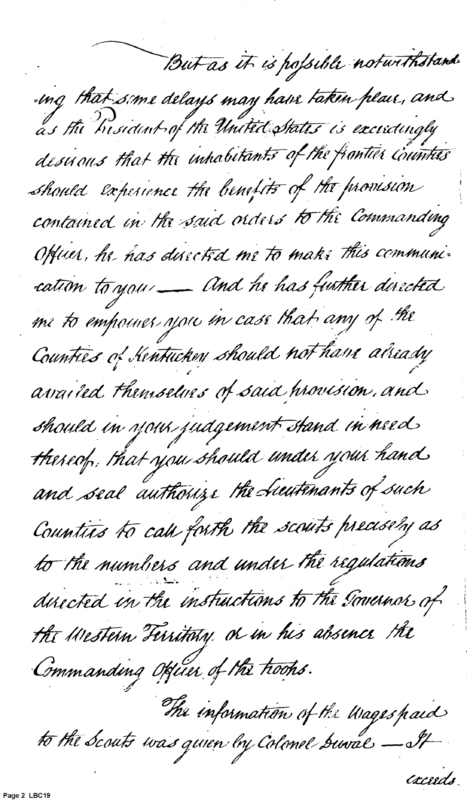 But as it is possible notwithstand-
-ing that some delays may have taken place, and
as the President of the United States is exceedingly
desirous that the inhabitants of the frontier Counties
should experience the benefits of the provision
contained in the said orders to the Commanding
Officer, he has directed me to make this communi-
cation to you — And he has further directed
me to empower you in case that any of the
Counties of Kentuckey should not have already
availed themselves of said provision, and
should in your judgement stand in need
thereof, that you should under your hand
and seal authorize the Lieutenants of such
Counties to call forth the scouts precisely as
to the numbers and under the regulations
directed in the instructions to the Governor of
the Western Territory or in his absence the
Commanding Officer of the troops.
The information of the Wages paid
to the Scouts was given by Colonel Duval — It
exceeds
Page 2 LBC19